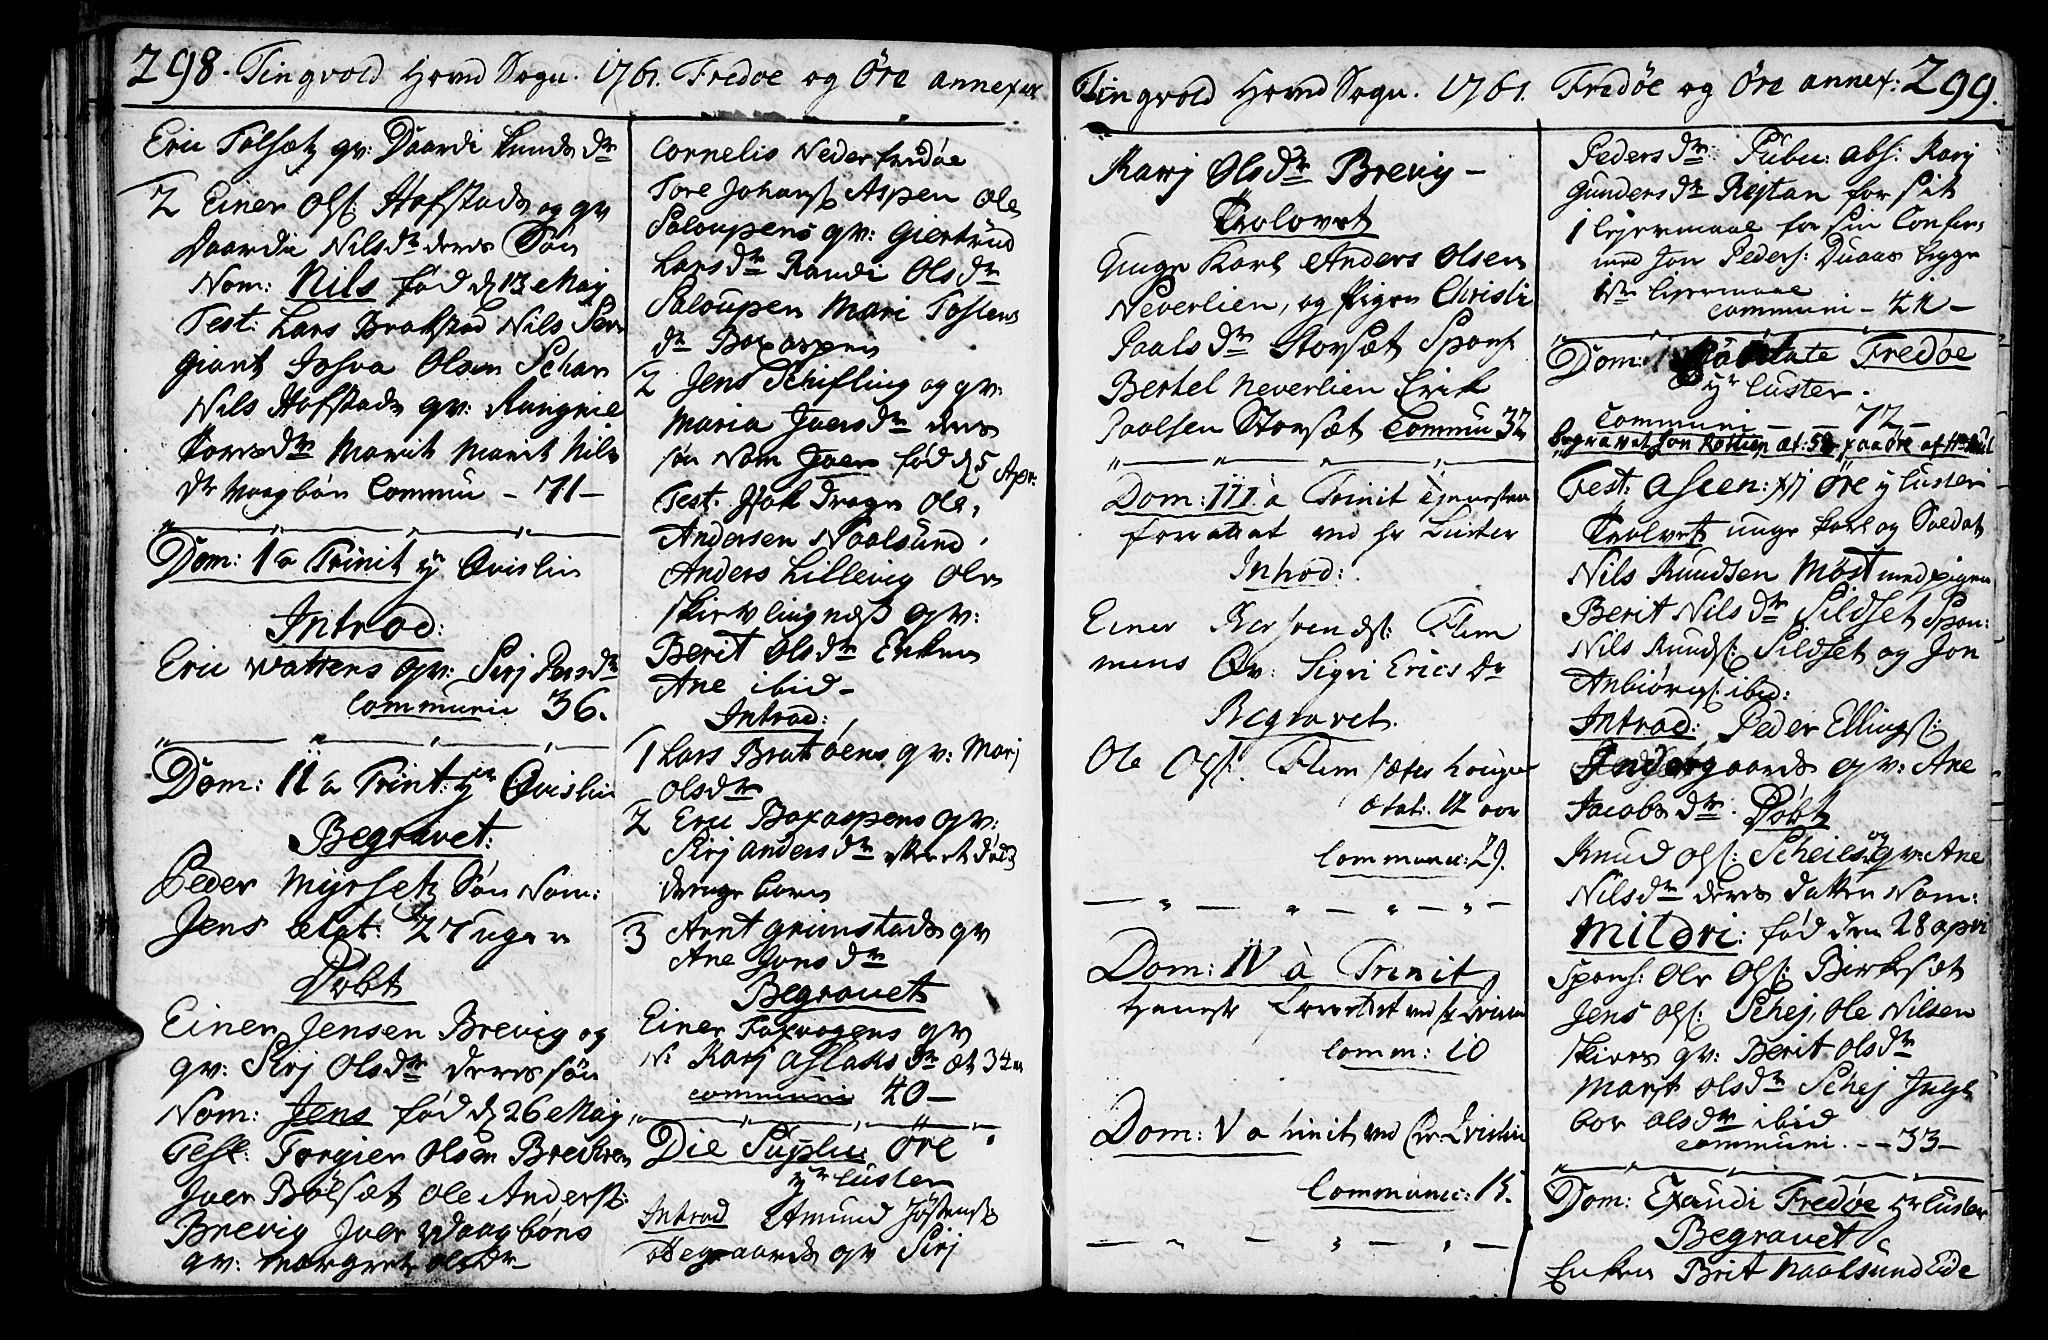 298. Tingvold Hoved Sogn. 1761. Fredøe og Øre annexer
Eric Folsetz qv: Baardi Knuds dr
2 Einer Ols: Hofstads og qv
Baardi Nilsdr deres Søn
Nom: Nils fød d 13 Maj
Test: Lars Brakstad Nils Ser
giant Josva Olsen Schar
Nils Hofstads qv: Rangnie
Toresdr Marit Marit Nils
dr Waagbøn Commu - 71 -
Dom: 1 a Trinit Qvislin
Introd:
Eric Wattens qv: Sirj Persdr
Communic 36.
Dom: II a Trinit: Qvislin
Begravet:
Peder Myrsetz Søn Nom:
Jens ætat: 27 uger
Døbt
Einer Jensen Brevig og
qv: Sirj Olsdr deres søn
Nom: Jens fød d 26 Maj
Test: Torgier Olsen
Jver Bølsæt Ole Anders:
Brevig Jver Waagbøns
qv: Margrete Olsdr
Cornelis Neder Fredøe
Tore Johans: Aspen Ole
Saloupens qv: Giertrud
Larsdr Randi Olsdr
Saloupen Mari Tostens
dr Boxaspen
2 Jens Schifling og qv:
Maria Jversdr deres
søn Nom Jver fød d 5 Apr:
Test: Ole
Andersen Naalsund
Anders Lillevig Ole
Skirvlingnæs qv:
Berit Olsdr Enken
Ane ibid -
Introd:
1 Lars Brattøens qv: Marj
Olsdr
2 Eric Boxaspens qv:
Sirj Andersdr
drenge barn
3 Arnt Grimstads qv
Ane Jonsdr
Begravet
Einer Foxvogens qv
N: Karj Aslaksdr æt 34
communi 40 -
Die Øre
Luster
Introd Amund Jøstens:
qv Sirj
Tingvold Hoved Sogn. 1761. Fredøe og Øre annex: 299.
Karj Olsdr Brevig -
Trolovet
Unge Karl Anders Olsen
Neverlien, og Pigen Christi
Paalsdr Storsæt Spons:
Bertel Neverlien Erik
Paalsen Storsæt Commu 32
Dom: III a Trinit tjenesten
forrettet ved hr Luster
Introd:
Einer
mens Qv: Sigri Ericsdr
Begravet.
Ole Ols:
Ætat: 12 aar
Communic: 29.
Dom: IV à Trinit
Comm: 10
Dom: V a Trinit ved Hr Qvislin
Communic: 15.
Pedersdr: Publ: abs: Karj
Gundersdr Rejtan for sit
1 lejermaal for sin Confir:
med Jon Peders:
1ste lejermaal
communi - 42 -
Dom: Fredøe
Luster.
Communi - - 72 -
begravet Jon
Fest: Ascen: Xsti Øre Luster
Trolovet unge karl og Soldat
Nils Knudsen Møst med pigen
Berit Nilsdr Sildset Spon:
Nils Knuds: Sildset og Jon
Anbiørns: ibid:
Introd: Peder Ellings:
qv: Ane
Jacobsdr: Døbt
Knud Ols: Scheies og qv: Ane
Nilsdr deres datter Nom:
Mildri: fød den 28 apri
Spons: Ole Ols: Birkesæt
Jens Ols: Schej, Ole Nilsen
Skires qv: Berit Olsdr
Marit Olsdr Schej Inge
bor Olsdr ibid
communi. - - 33 -
Dom: Exaudi Fredøe Hr Luster
Begravet
Enken Brit Naalsund Eide